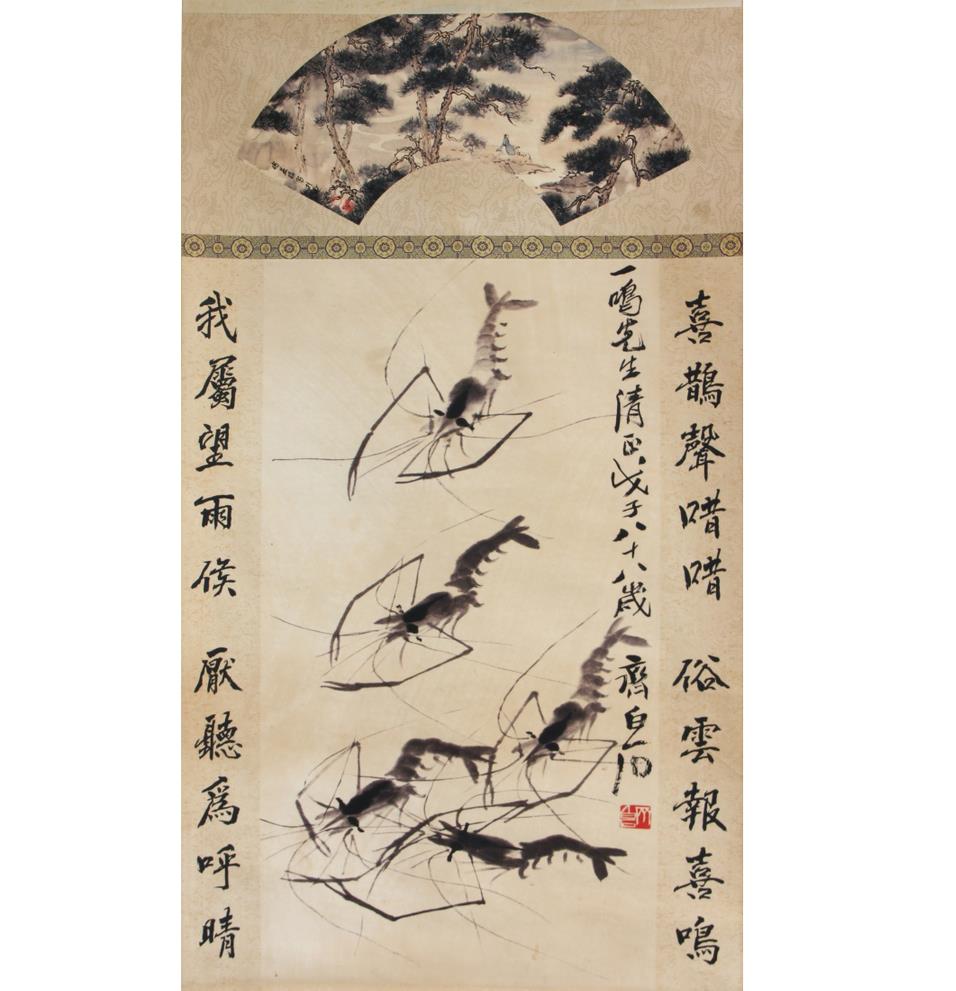 喜鵲聲喳喳 俗雲報喜鳴
一鳴先生清正戊子八十八歲 齊白石
我屬望雨候 厭聽爲呼晴